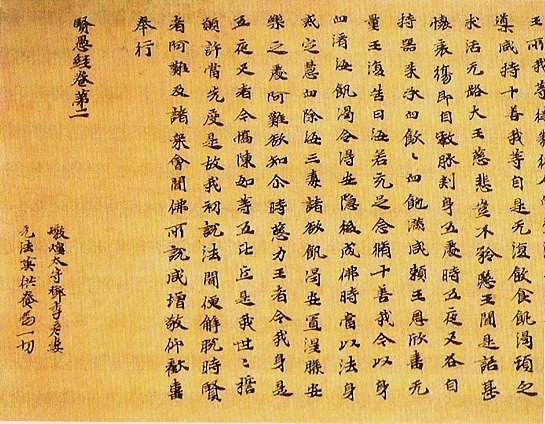 王所我等
導咸持十善我等自是无復飲食飢渴頓乏
求活无路大王慈悲豈不矜愍王聞是語甚
懷哀傷即自放脉刾身五處時五夜叉各自
持器來承血飲〻血飽滿咸賴王恩欣喜无
量王復告曰汝若充足念脩十善我今以身
血濟汝飢渴令得安隱後成佛時當以法身
戒定慧血除汝三毒諸欲飢渴安置涅槃安
樂之處阿難欲知尒時慈力王者今我身是
五夜叉者今憍陳如等五比丘是我世〻誓
願許當先度是故我初說法聞便解脫時賢
者阿難及諸衆會聞佛所說咸增敬仰歡喜
奉行
賢愚經卷第二
燉煌太守鄧季彥妻
元法英供養為一切